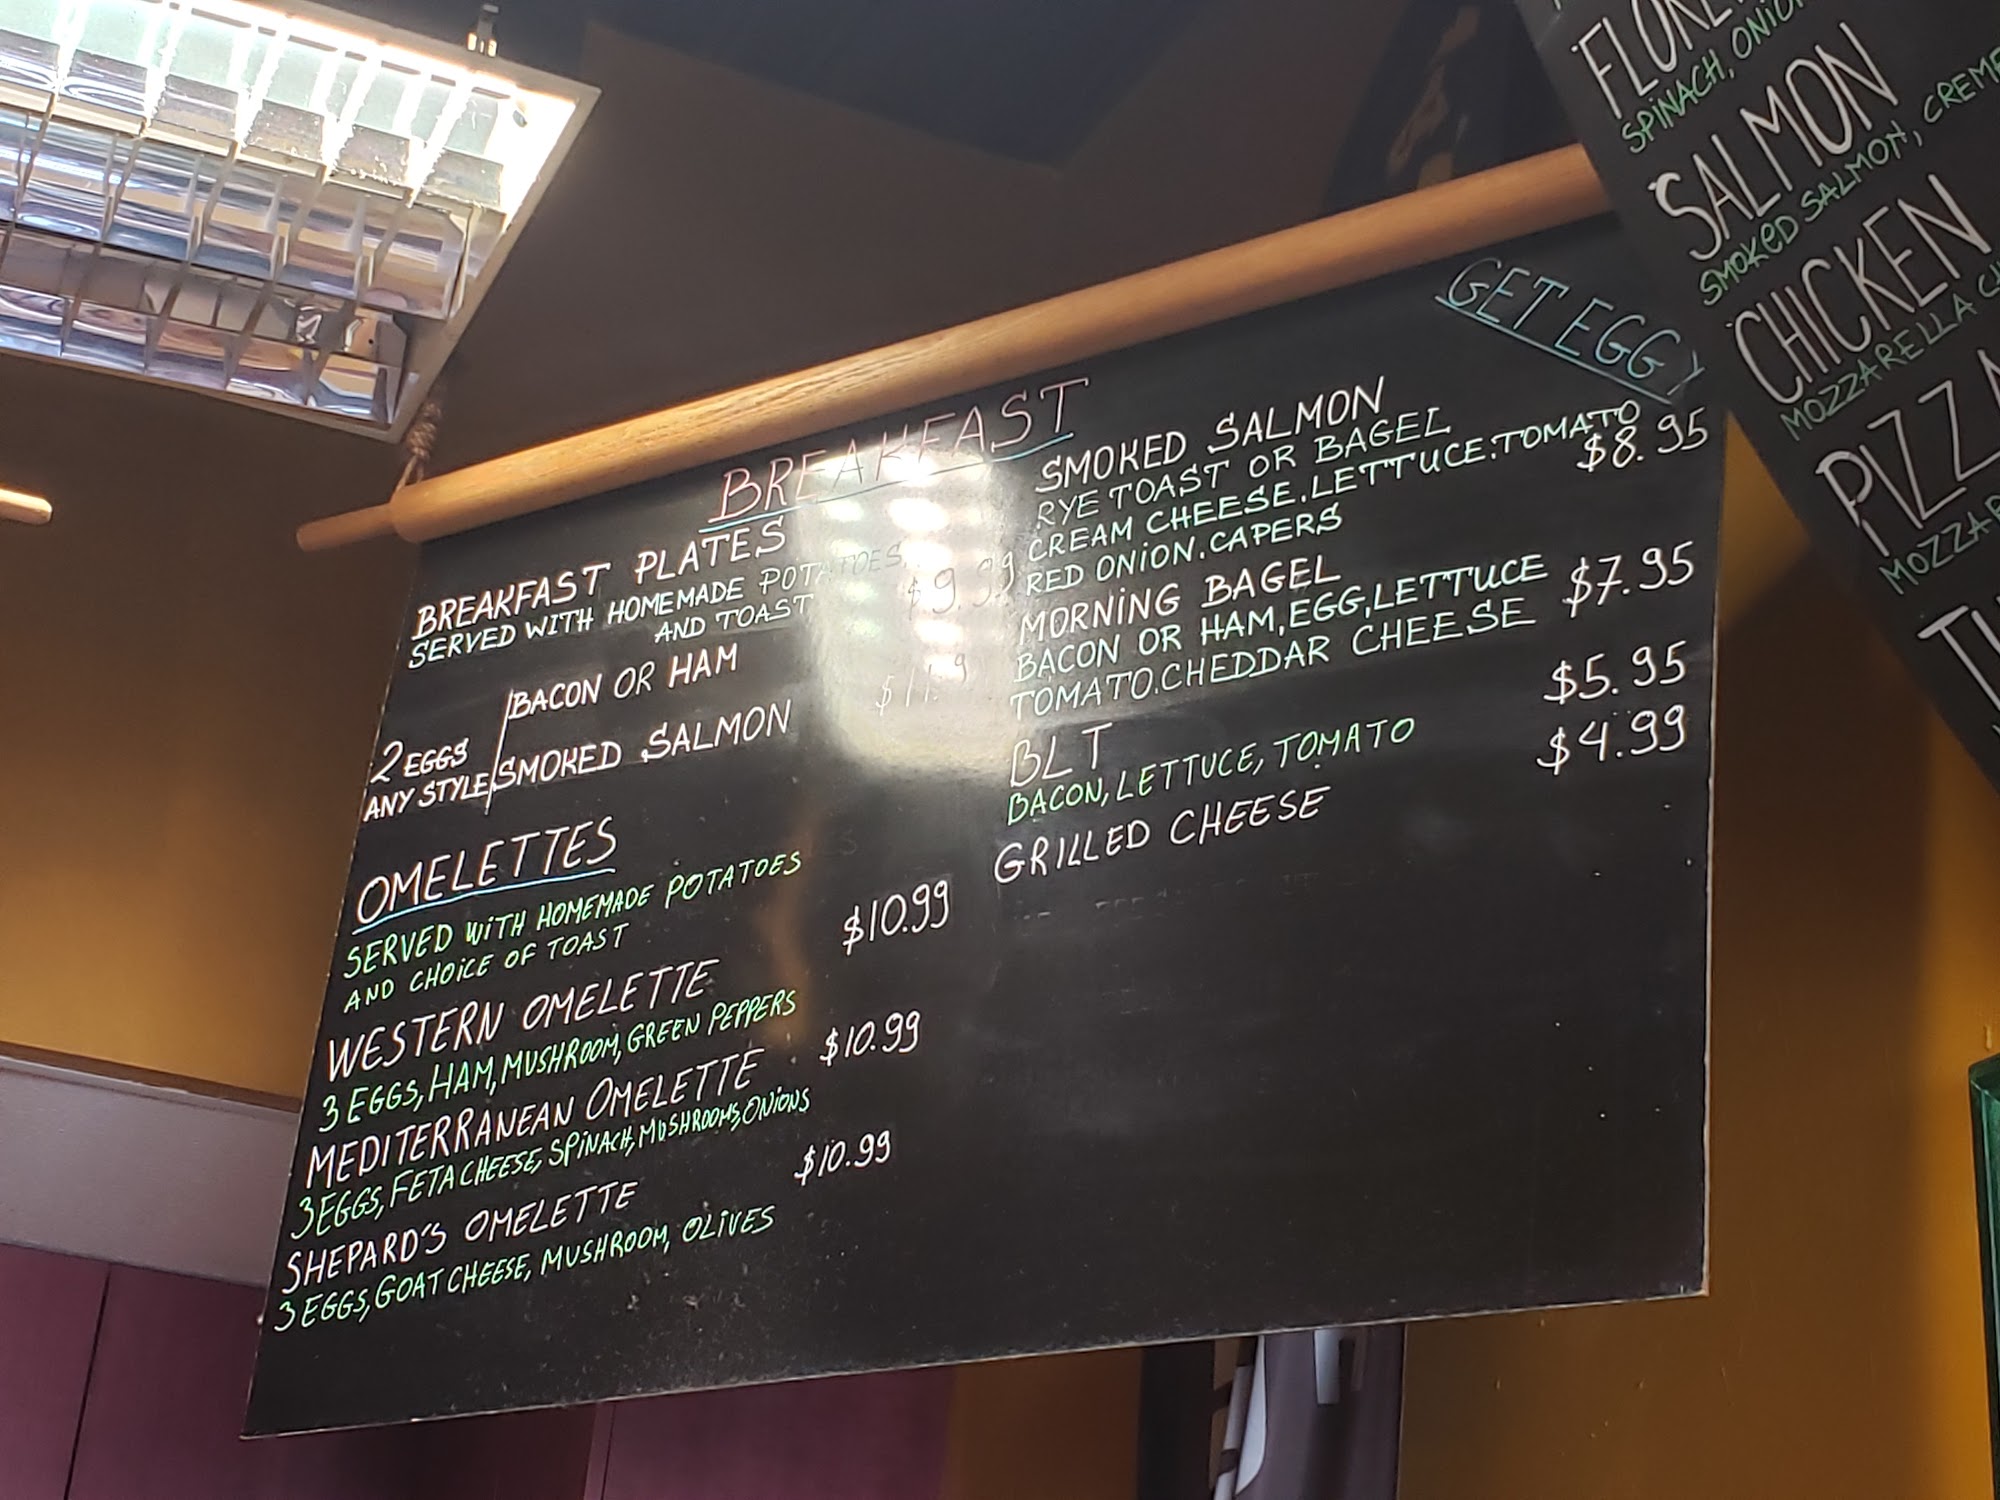 BREAKFAST
GET EGGY
BREAKFAST PLATES
SERVED WITH HOMEMADE POTATOES
AND TOAST
BACON OR HAM $9.99
2 EGGS
ANY STYLE
SMOKED SALMON
OMELETTES
SERVED WITH HOMEMADE POTATOES
AND CHOICE OF TOAST
WESTERN OMELETTE $10.99
3 EGGS, HAM, MUSHROOM, GREEN PEPPERS
MEDITERRANEAN OMELETTE $10.99
3 EGGS, FETA CHEESE, SPINACH, MUSHROOMS, ONIONS
SHEPARD'S OMELETTE $10.99
3 EGGS, GOAT CHEESE, MUSHROOM, OLIVES
SMOKED SALMON $8.95
RYE TOAST OR BAGEL
CREAM CHEESE.LETTUCE.TOMATO
RED ONION.CAPERS
MORNING BAGEL $7.95
BACON OR HAM, EGG, LETTUCE
TOMATO.CHEDDAR CHEESE
BLT $5.95
BACON, LETTUCE, TOMATO
GRILLED CHEESE $4.99
SPINACH,
SALMON
SMOKED SALMON,
CHICKEN
MOZZARELLA